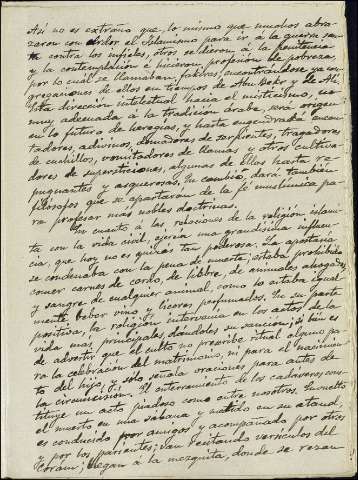 Así no es extraño que, lo mismo que muchos abra-
zaron con ardor el Islamismo para ir á la guerra san-
ta contra los infieles, otros saldieron á la penitencia
y la contemplación é hicieron profesión de pobreza,
por lo cual se llamaban fakires, encontrándose ya con-
gregaciones de ellos en tiempos de Abu Bekr y de Alí.
Esta dirección intelectual hacia el misticismo, no
muy adecuada á la tradición árabe, será origen
en lo futuro de heregías, y hasta engendrará encan-
tadores, adivinos, domadores de serpientes, tragadores
de cuchillos, vomitadores de llamas y otros cultiva-
dores de supersticiones, algunas de ellas hasta re-
pugnantes y asquerosas. En cambio, dará también
filósofos que se apartaron de la fé muslímica pa-
ra profesar más nobles doctrinas.
En cuanto á las relaciones de la religión islami-
ta con la vida civil, ejercía una grandísima influen-
cia, que hoy no es quizás tan poderosa. La apostasía
se condenaba con la pena de muerte; estaba prohibido
comer carnes de cerdo, de liebre, de animales ahogados
y sangre de cualquier animal, como lo estaba igual-
mente beber vino y licores perfumados. En su parte
positiva, la religión intervenía en los actos de la
vida más principales, dándoles su sanción; si bien es
de advertir que el culto no prescribe ritual alguno pa-
ra la celebración del matrimonio, ni para el nacimien-
to del hijo, y sólo señala oraciones para antes de
la circuncisión. El enterramiento de los cadáveres cons-
tituye un acto piadoso como entre nosotros. Envuelto
el muerto en una sábana y metido en su ataud,
es conducido por amigos y acompañado por otros
y por los parientes; van recitando versículos del
Coram; llegan á la mezquita, donde se rezan